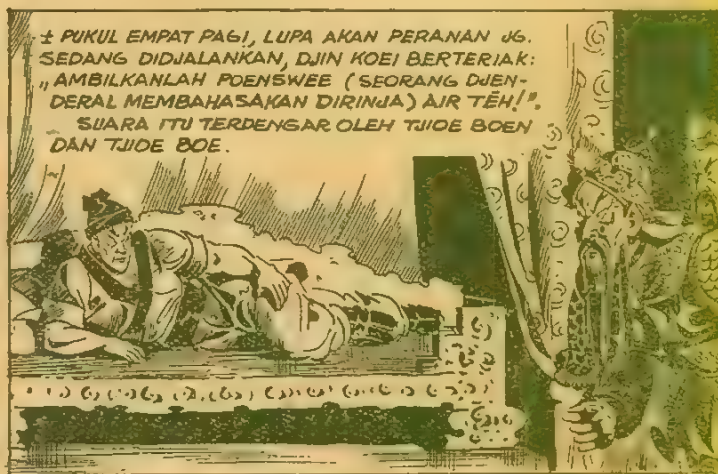 ± PUKUL EMPAT PAGI, LUPA AKAN PERANAN JG.
SEDANG DIDJALANKAN, DJIN KOEI BERTERIAK:
„AMBILKANLAH POENSWEE (SEORANG DJEN-
DERAL MEMBAHASAKAN DIRINJA) AIR TÉH!”.
SUARA ITU TERDENGAR OLEH TJIOE BOEN
DAN TJIOE BOE.